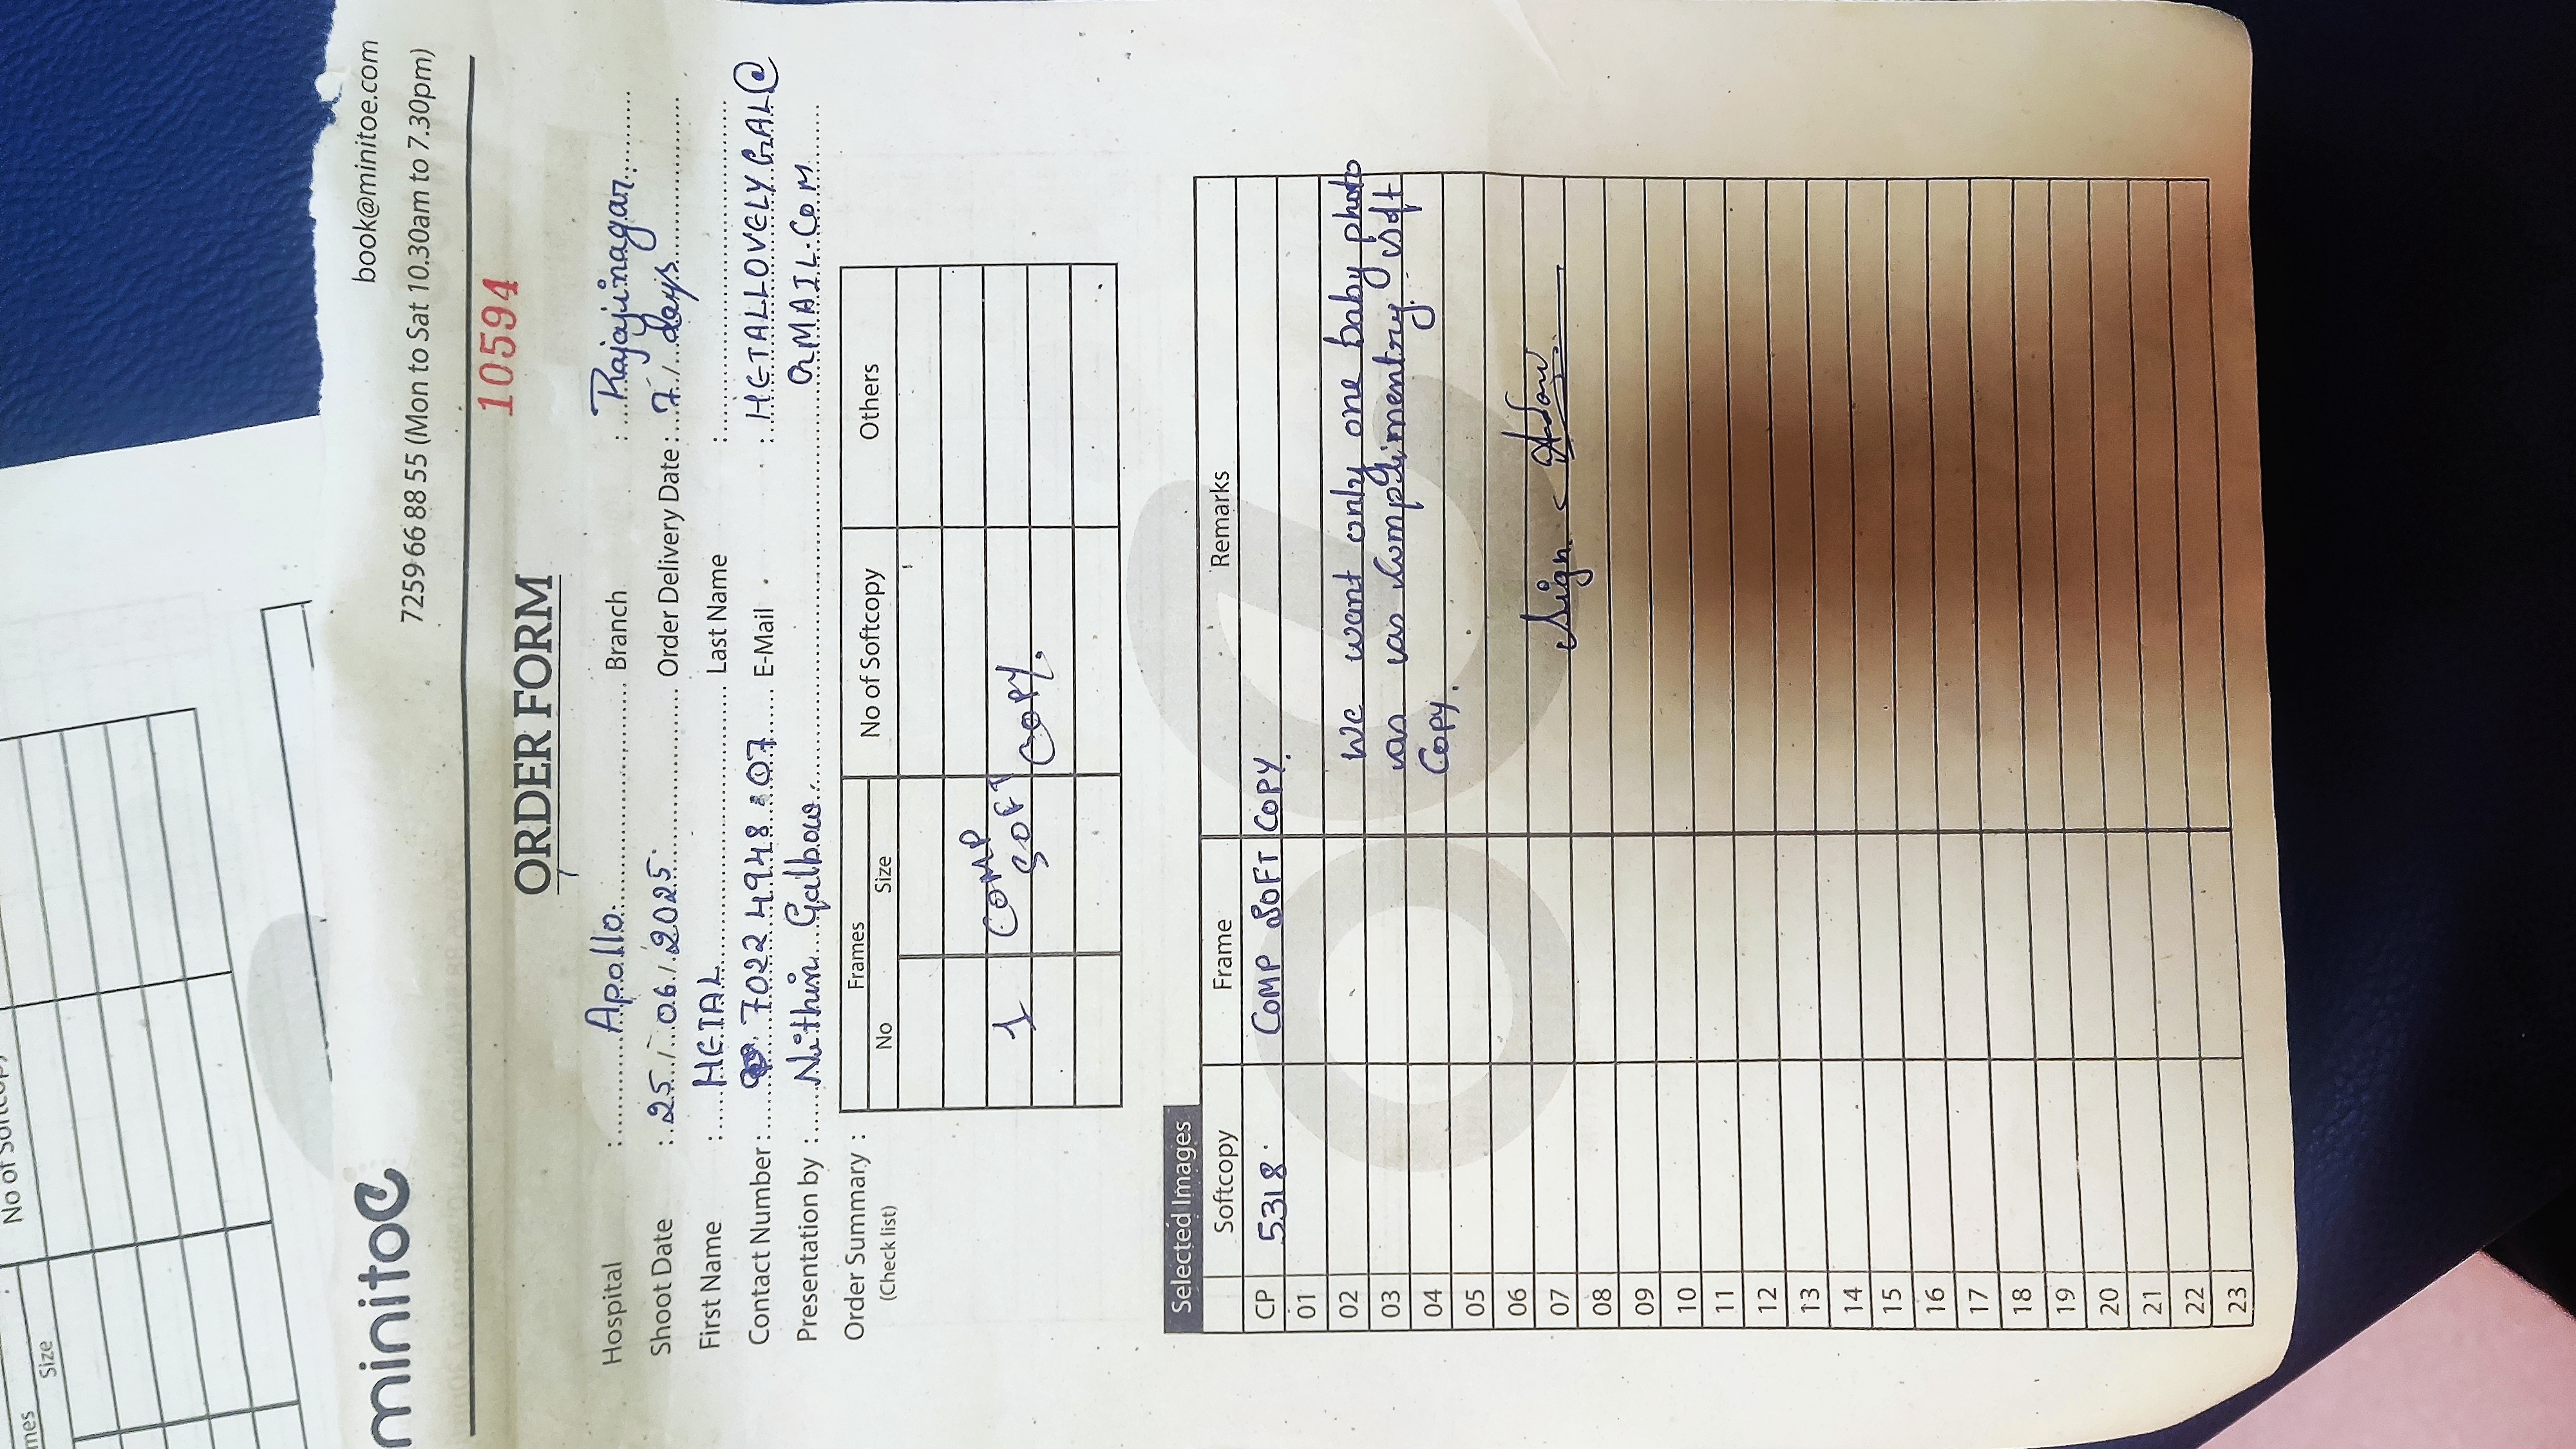 No of Softcopy
Size
minitoe
book@minitoe.com
7259 66 88 55 (Mon to Sat 10.30am to 7.30pm)
ORDER FORM
10594
Hospital : Apollo. Branch : Rajajinagar.
Shoot Date : 25/06/2025. Order Delivery Date : 7/days
First Name : HETAL Last Name :
Contact Number : 7022 4948 07 E-Mail : HETALLOVELYGAL@
GMAIL.COM
Presentation by : Nithin
Order Summary :
(Check list)
Frames No of Softcopy Others
No Size
1 COMP
SOFT COPY.
Selected Images
Softcopy Frame Remarks
CP 5318. COMP SOFT COPY.
01
02 We want only one baby photo
03 as as Complimentry soft
04 Copy.
05
06
07 Sign
08
09
10
11
12
13
14
15
16
17
18
19
20
21
22
23